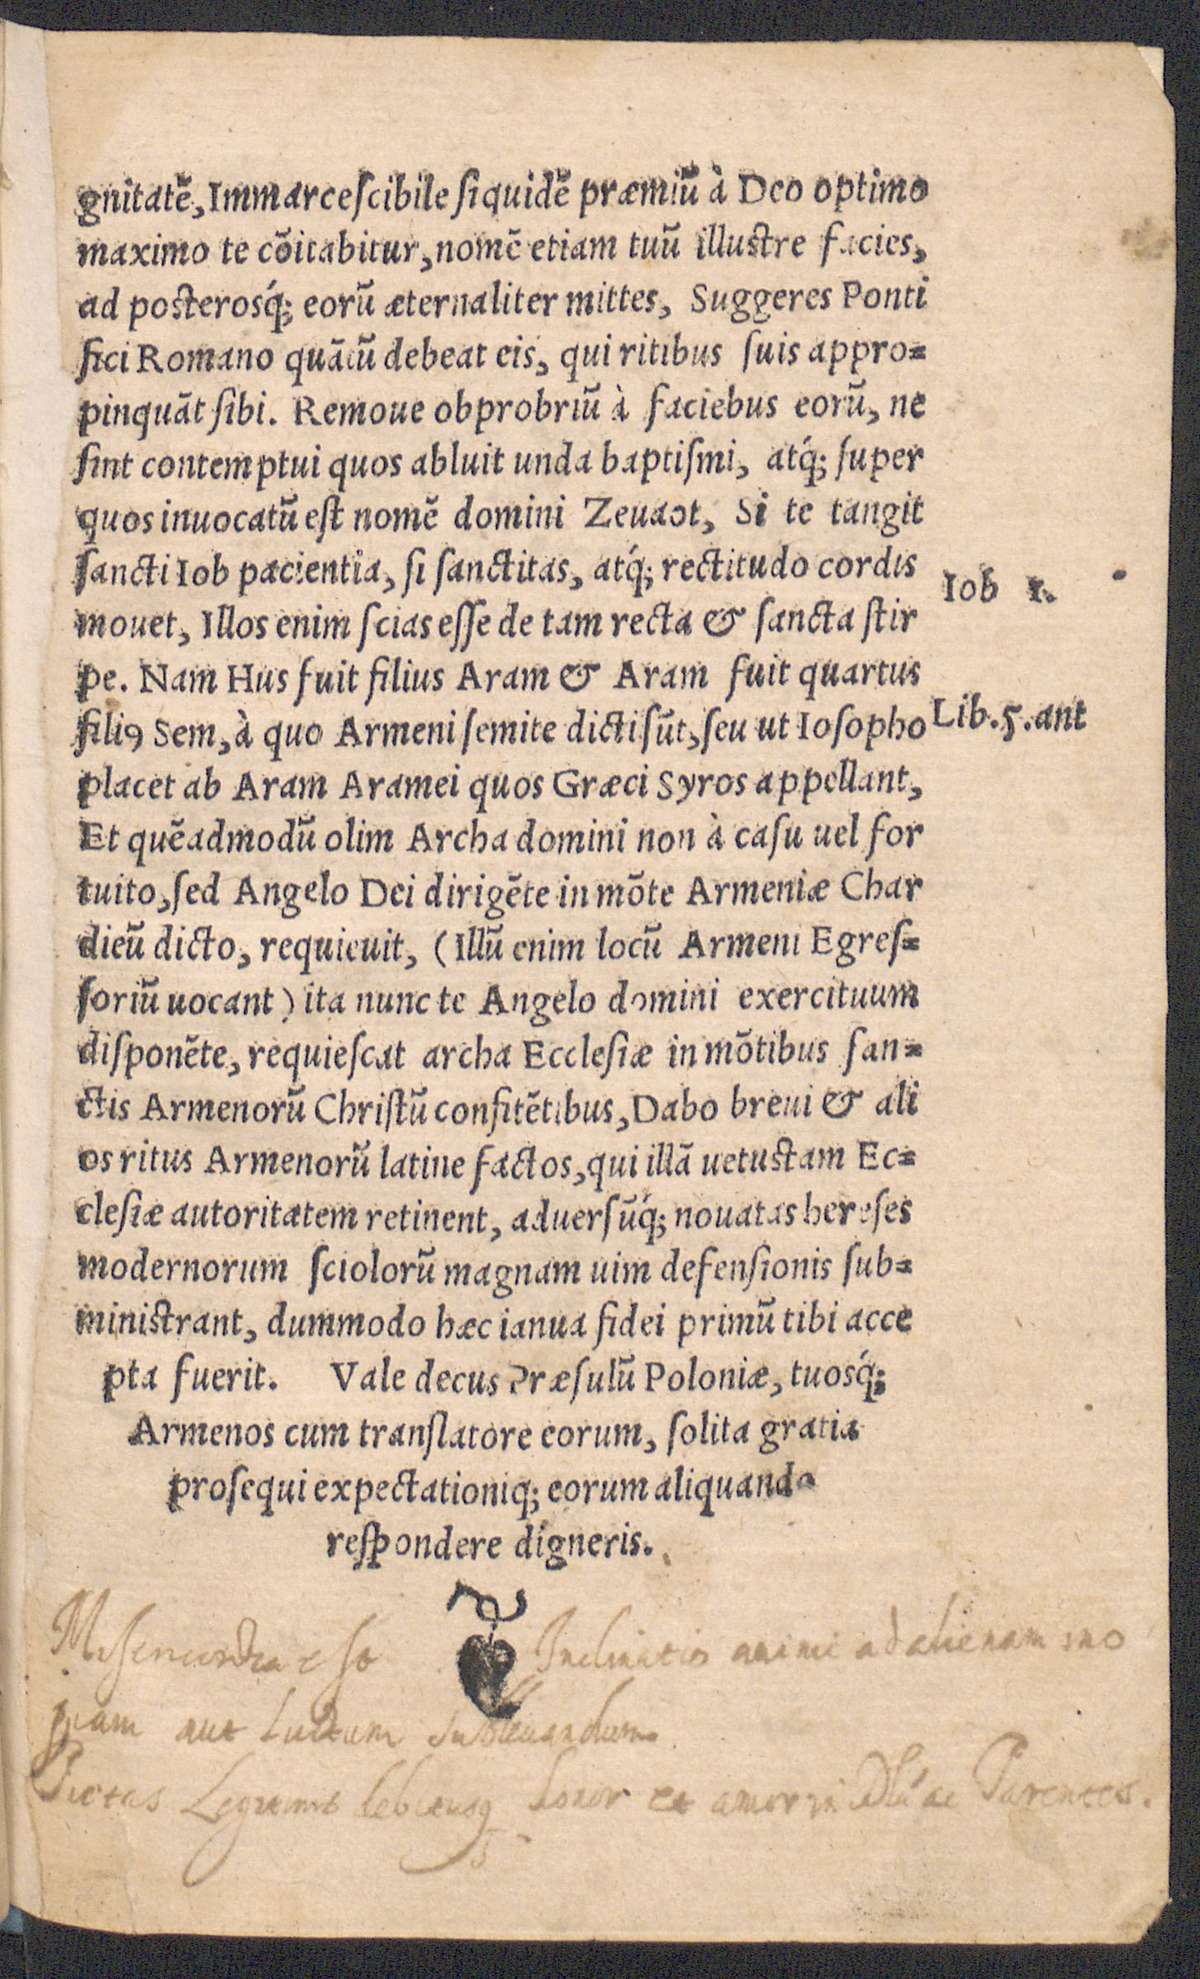 gnitatē, Immarceſcibile ſiquidē præmiū à Deo optimo
maximo te cōitabitur, nomē etiam tuū illuſtre facies,
ad poſterosq́; eorū æternaliter mittes, Suggeres Ponti
fici Romano quātū debeat eis, qui ritibus ſuis appro=
pinquāt ſibi. Remoue obprobriū à faciebus eorū, ne
ſint contemptui quos abluit unda baptiſmi, atq́; ſuper
quos inuocatū eſt nomē domini Zeuaot, Si te tangit
ſancti Iob pacientia, ſi ſanctitas, atq́; rectitudo cordis
Iob 1.
mouet, Illos enim ſcias eſſe de tam recta & ſancta ſtir
pe. Nam Hus fuit filius Aram & Aram fuit quartus
filiꝰ Sem, à quo Armeni ſemite dicti ſūt, ſeu ut Ioſopho
Lib. 5. ant
placet ab Aram Aramei quos Græci Syros appellant,
Et quēadmodū olim Archa domini non à caſu uel for
tuito, ſed Angelo Dei dirigēte in mōte Armeniæ Char
dieū dicto, requieuit, (Illū enim locū Armeni Egreſ=
ſoriū uocant) ita nunc te Angelo domini exercituum
diſponēte, requieſcat archa Eccleſiæ in mōtibus ſan=
ctis Armenorū Chriſtū confitētibus, Dabo breui & ali
os ritus Armenorū latine factos, qui illā uetuſtam Ec=
cleſiæ autoritatem retinent, aduerſūq́; nouatas hereſes
modernorum ſciolorū magnam uim defenſionis ſub=
miniſtrant, dummodo hæc ianua fidei primū tibi acce
pta fuerit. Vale decus Præſulū Poloniæ, tuosq́;
Armenos cum tranſlatore eorum, ſolita gratia
proſequi expectationiq́; eorum aliquando
reſpondere digneris.
Misericordia e Inclinatio animi ad alienam ino
piam aut luctum subleuandum
Pietas Legitimus honor et amor in ac Parentes.